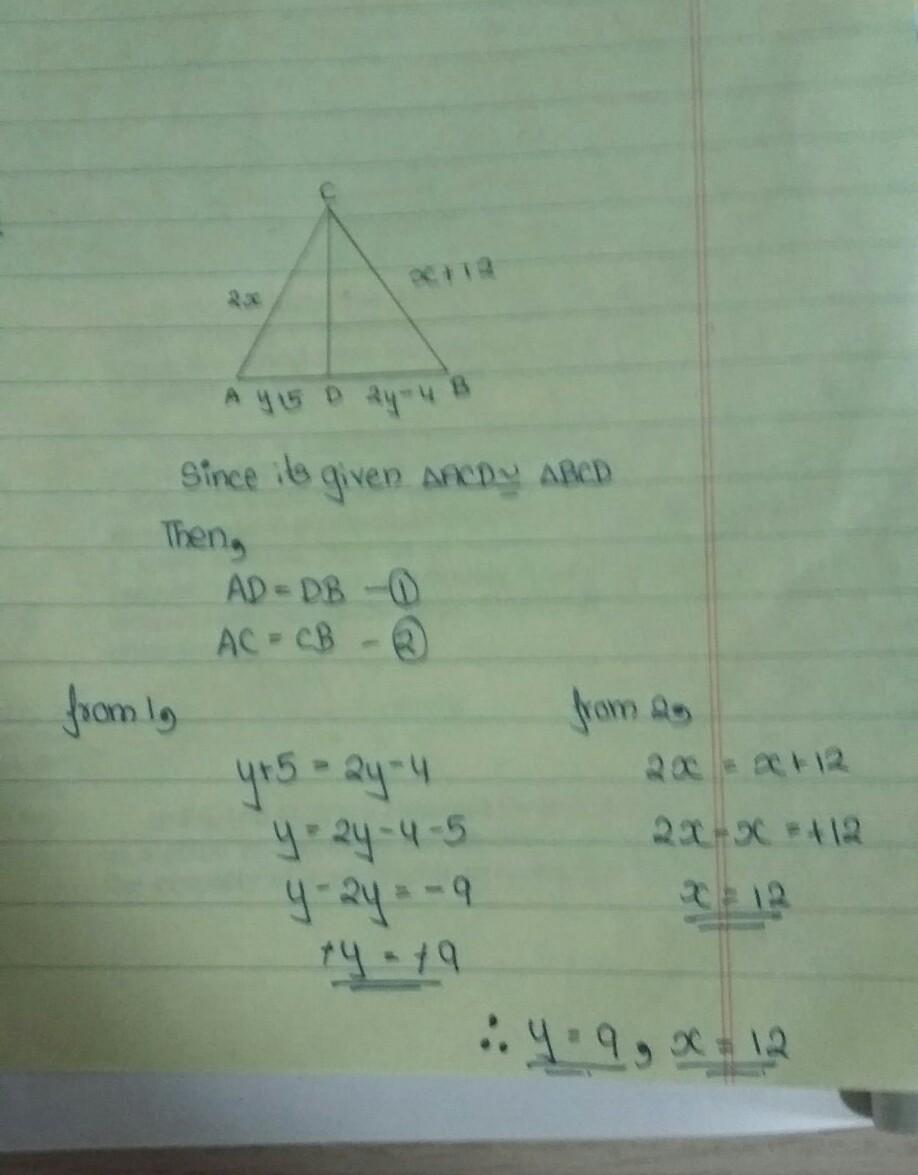 C
2x
x+12
A y+5 D 2y-4 B
Since its given ΔACD ≅ ΔBCD
Then,
AD = DB - ①
AC = CB - ②
from 1,
y+5 = 2y-4
y = 2y-4-5
y-2y = -9
+y = +9
from 2,
2x = x+12
2x-x = +12
x = 12
∴ y = 9, x = 12